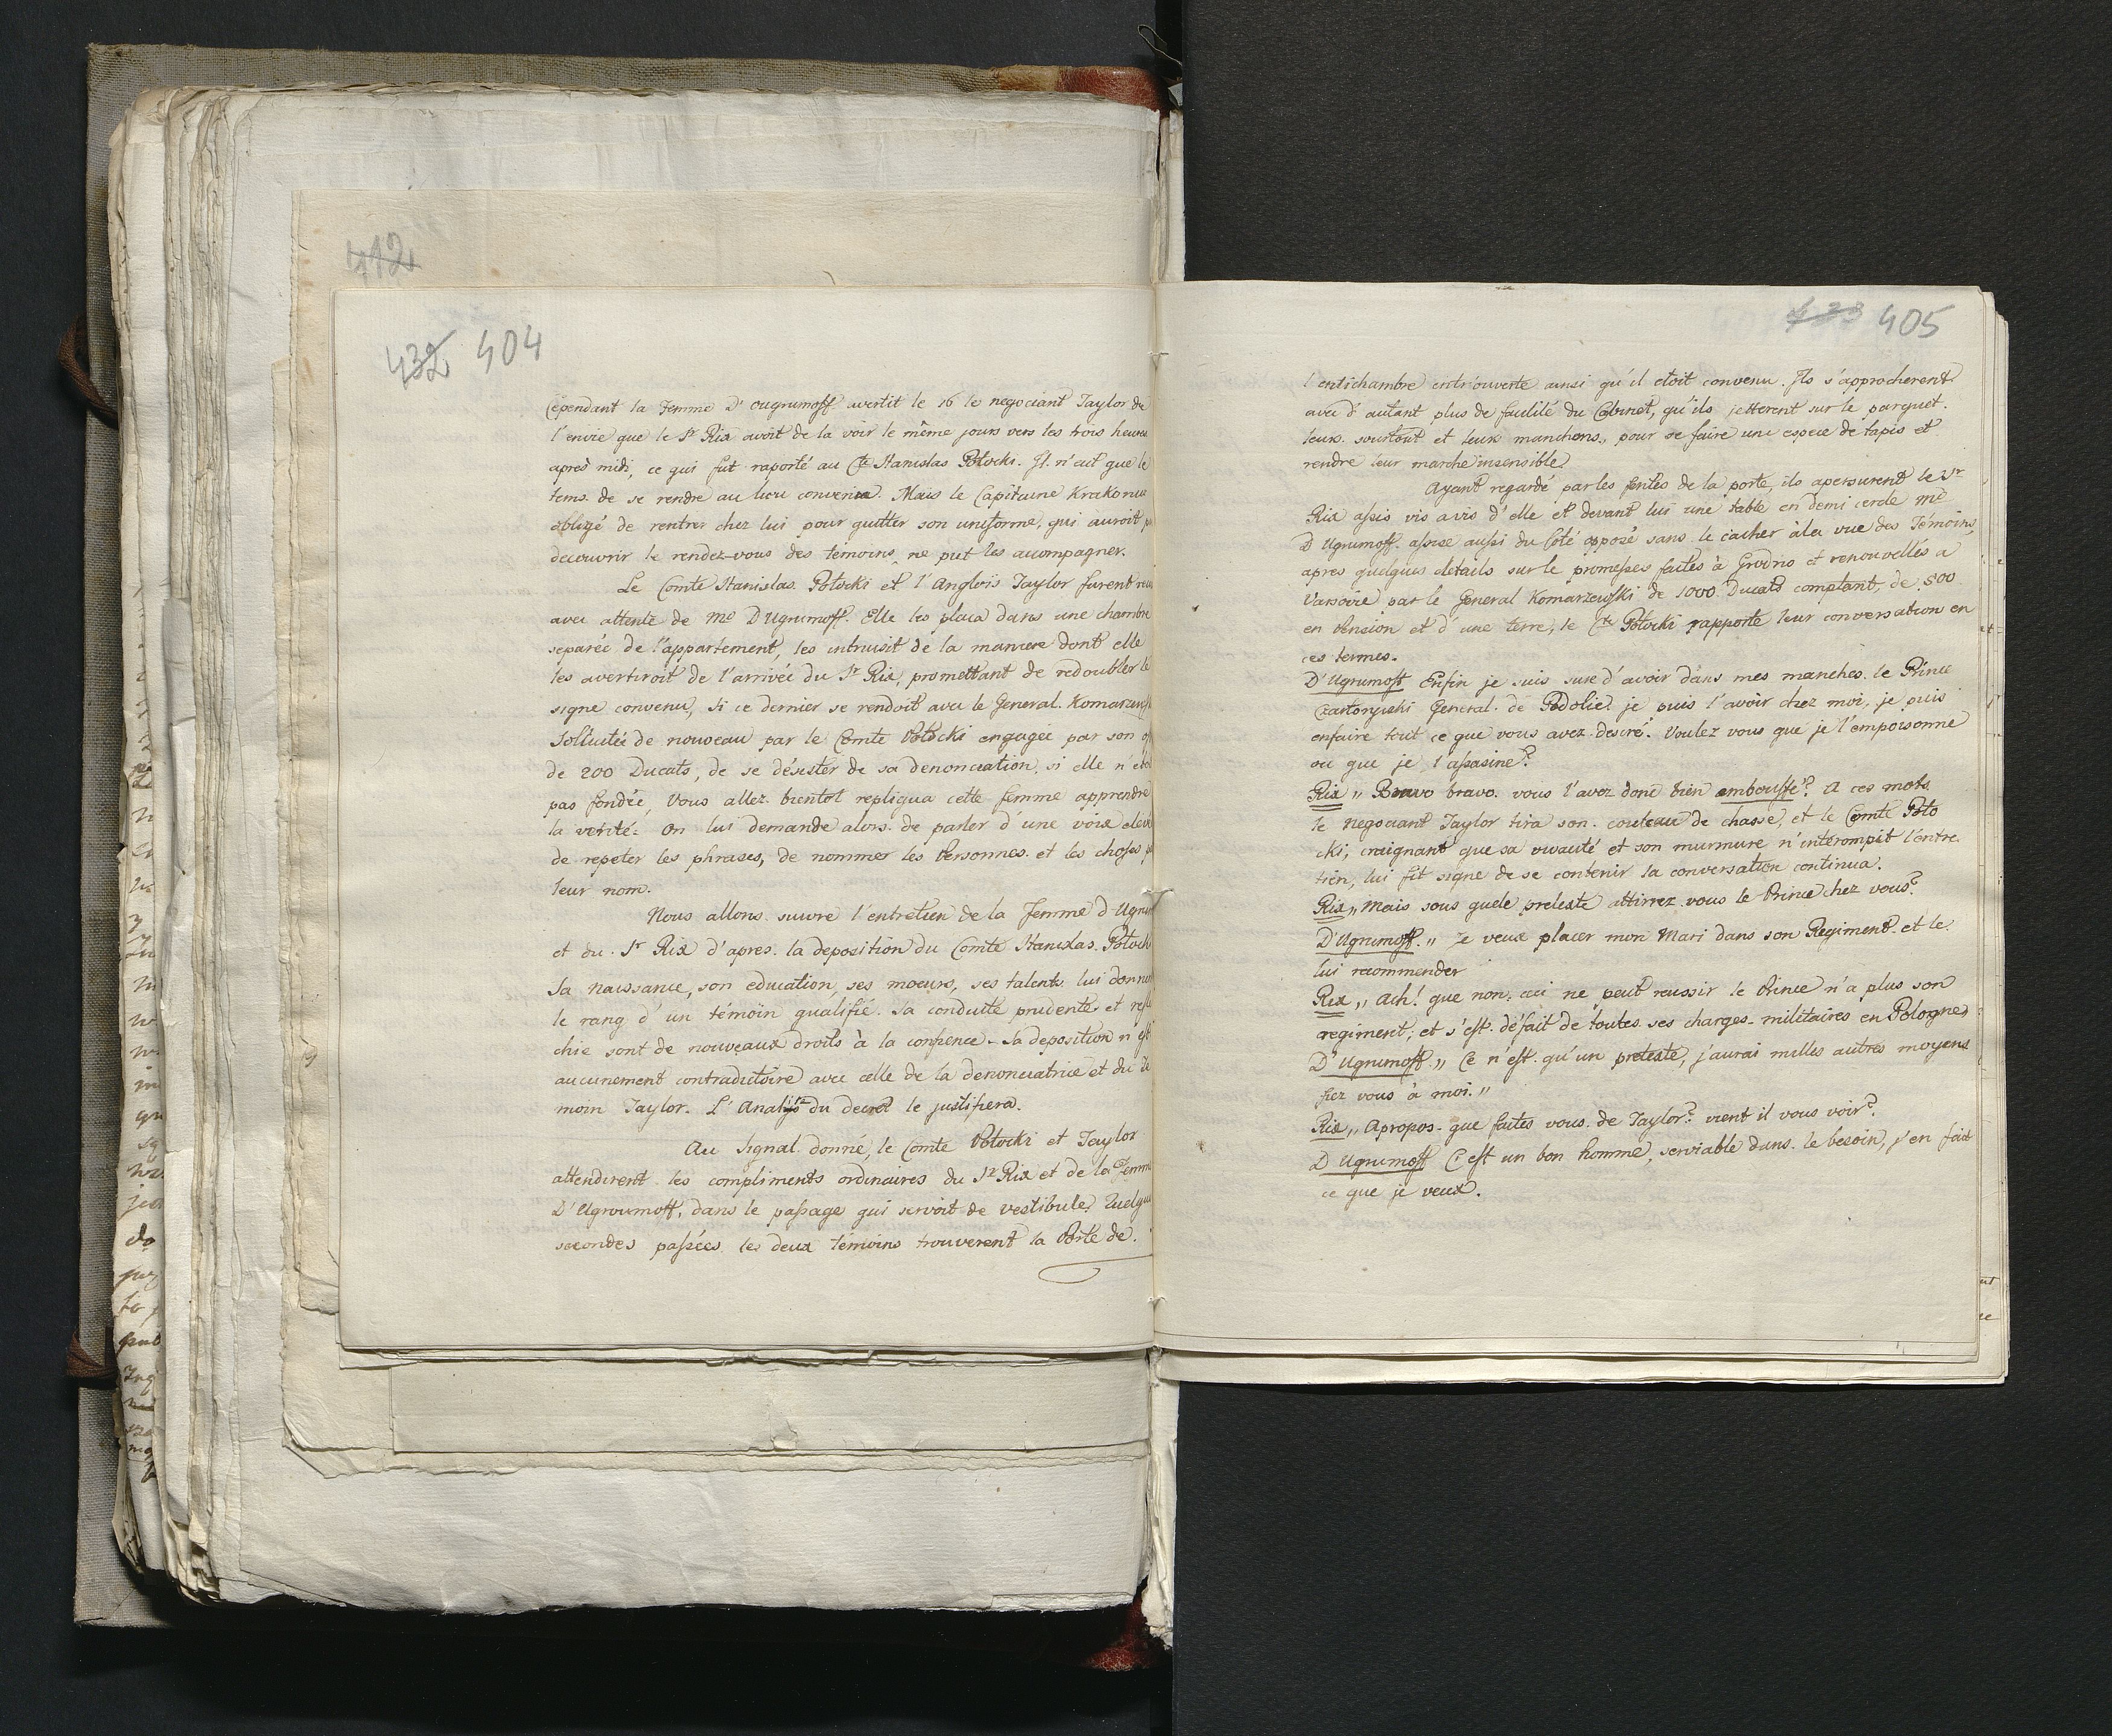 412
432 404
Cependant la Femme D'Ougrumoff avertit le 16 le negociant Taylor de
l'envie que le Sr Rix avoit de la voir le même jours vers les trois heures
après midi, ce qui fut raporté au Cte Stanislas Potocki. Il n'eut que le
tems de se rendre au lieu convenu. Mais le Capitaine
obligé de rentrer chez lui pour quitter son uniforme, qui auroit
decouvrir le rendez-vous des témoins ne put les accompagner.
Le Comte Stanislas Potocki et l'Anglois Taylor furent
avec attente de Me D'Ugrumoff. Elle les plaça dans une chambre
separée de l'appartement, les intruisit de la maniere dont elle
les avertiroit de l'arrivée du Sr Rix, promettant de redoubler le
signe convenu, si ce dernier se rendoit avec le General
Sollicitée de nouveau par le Comte Potocki engagée par son
de 200 Ducats, de se désister de sa denonciation si elle
pas fondée, Vous allez bientot repliqua cette femme apprendre
la verité. On lui demande alors de parler d'une voix
de repeter les phrases, de nommer les Personnes et les choses
leur nom.
Nous allons suivre l'entretien de la Femme
et du Sr Rix d'apres la deposition du Comte Stanislas
Sa naissance, son education, ses moeurs, ses talents lui
le rang d'un témoin qualifié. Sa conduite prudente et
chie sont de nouveaux droits à la confience. Sa deposition n'est
aucunement contradictoire avec celle de la denonciatrice et du
moin Taylor. L'Analyse du decret le justifiera.
Au signal donné, le Comte Potocki et Taylor
attendirent les compliments ordinaires du Sr Rix et de la Femme
D'Ugroumoff, dans le passage qui servoit de vestibule.
secondes passées les deux témoins trouverent la Porte de
423 405
l'entichambre entr'ouverte ainsi qu'il etoit convenu. Ils s'approcherent
avec d'autant plus de facilité du Cabinet, qu'ils jetterent sur le parquet
leurs sourtout et leurs manchons, pour se faire une espece de tapis et
rendre leur marche insensible.
Ayant regardé par les fentes de la porte, ils apersurent le Sr
Rix assis vis avis d'elle et devant lui une table en demi cercle Me
D'Ugrumoff assise aussi du Côté opposé sans le cacher à la vue des Témoins,
apres quelques details sur le promesses faites à Grodno et renouvellés a
Varsovie par le General Komarzewski de 1000 Ducats comptant, de 500
en Pension et d'une terre, le Cte Potocki rapporte leur conversation en
ces termes.
D'Ugrumoff Enfin je suis sure d'avoir dans mes manches le Prince
Czartoryiski General de Podolie je puis l'avoir chez moi, je puis
enfaire tout ce que vous avez desiré. Voulez vous que je l'empoisonne
ou que je l'assasine?
Rix „ Bravo bravo vous l'avez donc bien embouffé? A ces mots
le Negociant Taylor tira son couteau de chasse, et le Comte Poto
cki, craignant que sa vivacité et son murmure n'intérompit l'entre
tien, lui fit signe de se contenir la conversation continua.
Rix „ Mais sous quele preteste attirrez vous le Prince chez vous?
D'Ugrumoff „ Je veux placer mon Mari dans son Regiment et le
lui recommender
Rix „ Ach! que non. ceci ne peut reussir le Prince n'a plus son
regiment; et s'est défait de toutes ses charges militaires en Pologne
D'Ugrumoff „ Ce n'est qu'un preteste, j'aurai milles autres moyens
fiez vous à moi."
Rix „ Apropos que faites vous de Taylor? vient il vous voir?
D'Ugrumoff C'est un bon homme, serviable dans le besoin, j'en fait
ce que je veux.